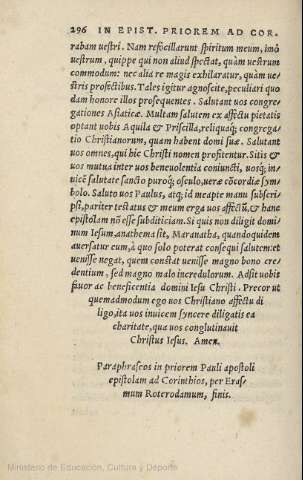 296 IN EPIST. PRIOREM AD COR.
rabam uestri. Nam refocillarunt spiritum meum, imò
uestrum, quippe qui non aliud spectat, quàm uestrum
commodum: nec alia re magis exhilaratur, quàm ue-
stris profectibus. Tales igitur agnoscite, peculiari quo
dam honore illos prosequentes. Salutant uos congre-
gationes Asiaticæ. Multam salutem ex affectu pietatis
optant uobis Aquila & Priscilla, reliquaq; congrega-
tio Christianorum, quam habent domi suæ. Salutant
uos omnes, qui hic Christi nomen profitentur. Sitis &
uos mutua inter uos beneuolentia coniuncti, uosq; in-
uicē salutate sancto puroq; osculo, ueræ cōcordiæ sym-
bolo. Saluto uos Paulus, atq; id meapte manu subscri-
psi, pariter testatus & meum erga uos affectū, & hanc
epistolam nō esse subditiciam. Si quis non diligit domi-
num Iesum, anathema sit, Maranatha, quandoquidem
auersatur eum, à quo solo poterat consequi salutem: et
uenisse negat, quem constat uenisse magno bono cre-
dentium, sed magno malo incredulorum. Adsit uobis
fauor ac beneficentia domini Iesu Christi. Precor ut
quemadmodum ego uos Christiano affectu di
ligo, ita uos inuicem syncere diligatis ea
charitate, qua uos conglutinauit
Christus Iesus. Amen.
Paraphraseos in priorem Pauli apostoli
epistolam ad Corinthios, per Eras-
mum Roterodamum, finis.
Ministerio de Educación, Cultura y Deporte